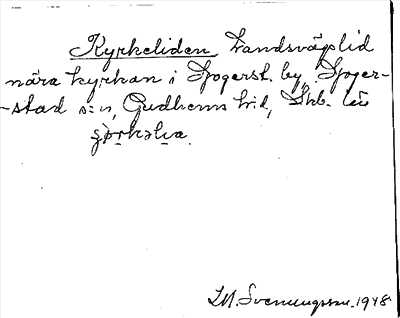 Kyrkeliden Landsvägslid
nära kyrkan i Sjogerst. by, Sjoger-
-stad s:n, Gudhems h:d, Skb. län
SM. Svenungsson. 1948